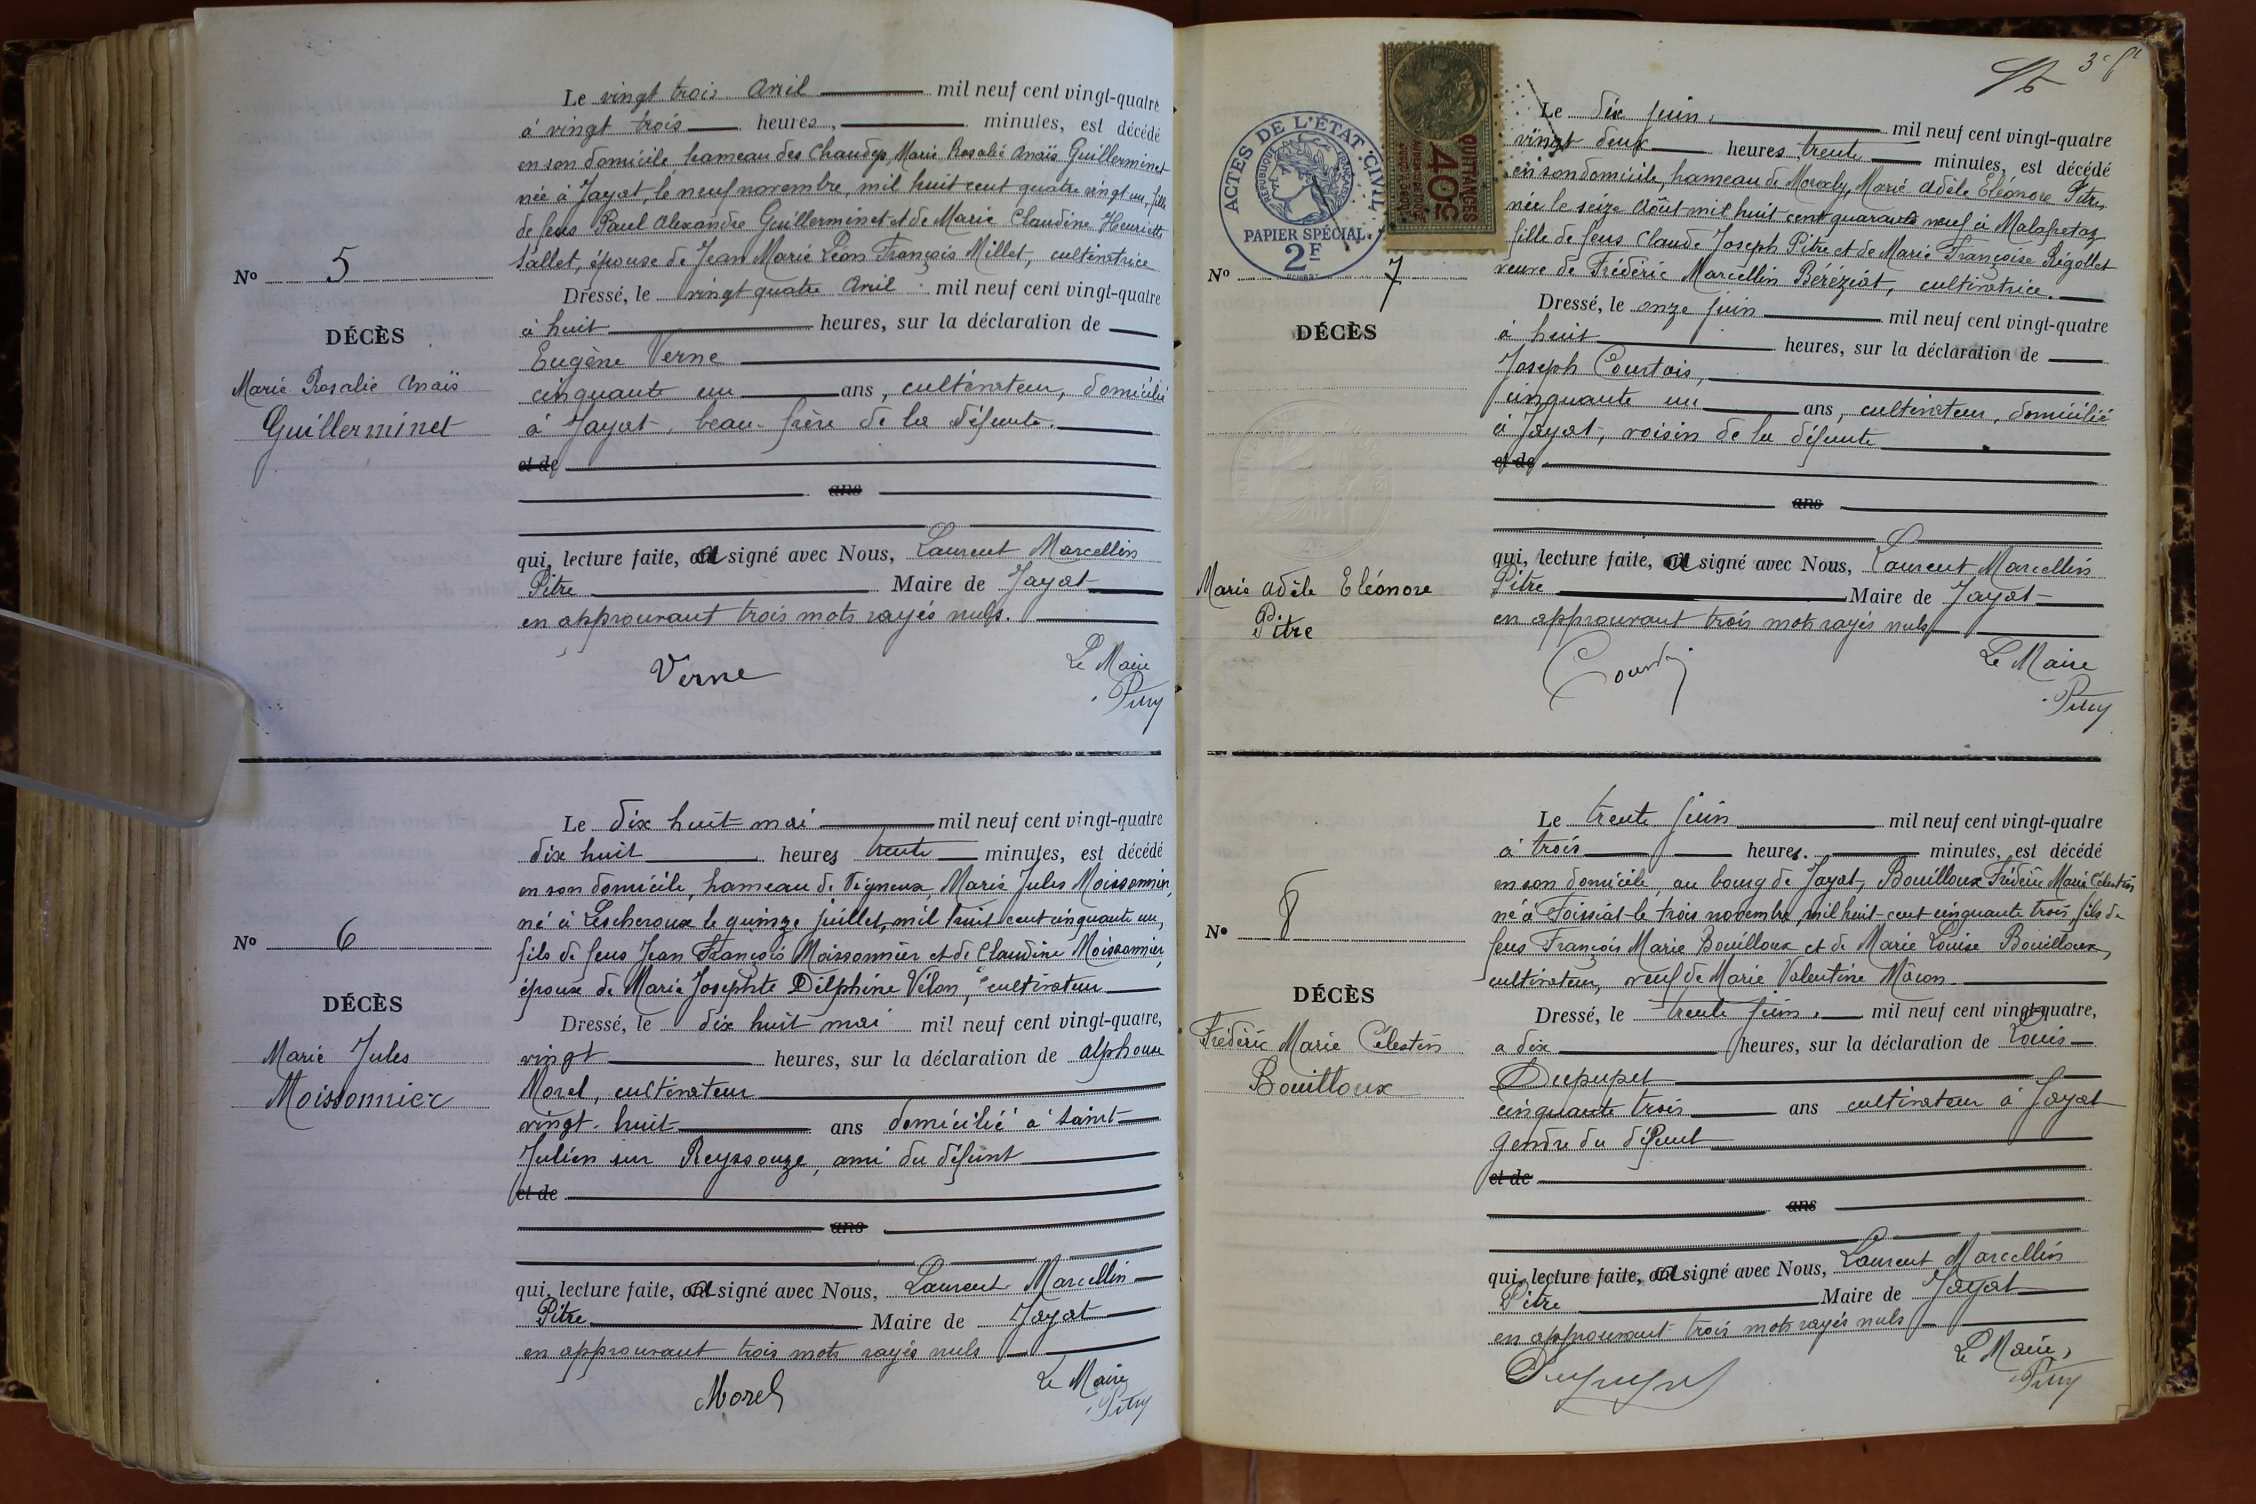 Le vingt trois Avril mil neuf cent vingt-quatre
à vingt trois heures, minutes, est décédé
en son domicile, hameau des Marie Rosalie Anaïs Guillerminet
née à Jayat, le neuf novembre, mil huit cent quatre vingt un, fille
de feus Paul Alexandre Guillerminet et de Marie Claudine Henriette
Sallet, épouse de Jean Marie Léon François Millet, cultivatrice
Nº 5
Dressé, le vingt quatre Avril mil neuf cent vingt-quatre
à huit heures, sur la déclaration de
DÉCÈS
Eugène Verne
Marie Rosalie Anaïs
cinquante un ans, cultivateur, domicilié
Guillerminet
à Jayat, beau-frère de la défunte.
et de
ans
qui, lecture faite, a signé avec Nous, Laurent Marcellin
Pitre Maire de Jayat
en approuvant trois mots rayés nuls.
Verne
Le Maire
Pitre
Le dix huit mai mil neuf cent vingt-quatre
dix huit heures trente minutes, est décédé
en son domicile, hameau de Vigneux, Marie Jules Moissonnier,
né à Lescheroux le quinze juillet, mil huit cent cinquante un,
Nº 6
fils de feus Jean François Moissonnier et de Claudine Moissonnier,
époux de Marie Josephte Délphine Vélon, cultivateur
DÉCÈS
Dressé, le dix huit mai mil neuf cent vingt-quatre,
Marie Jules
vingt heures, sur la déclaration de Alphonse
Moissonnier
Morel, cultivateur
vingt-huit ans domicilié à Saint
Julien sur Reyssouze, ami du défunt
et de
ans
qui, lecture faite, a signé avec Nous, Laurent Marcellin
Pitre Maire de Jayat
en approuvant trois mots rayés nuls
Morel
Le Maire
Pitre
3e ft
ACTES DE L'ÉTAT CIVIL
RÉPUBLIQUE FRANÇAISE
PAPIER SPÉCIAL
2F
QUITTANCES
40c
Le dix juin, mil neuf cent vingt-quatre
vingt deux heures trente minutes, est décédé
en son domicile, hameau de Marie Adèle Eléonore Pitre,
née le seize Août mil huit cent quarante neuf à Malafretaz
fille de feus Claude Joseph Pitre et de Marie Françoise Régollet
Nº 7
veuve de Frédéric Marcellin Beréziat, cultivatrice.
Dressé, le onze juin mil neuf cent vingt-quatre
DÉCÈS
à huit heures, sur la déclaration de
Joseph Courtois,
cinquante un ans, cultivateur, domicilié
à Jayat, voisin de la défunte
et de
ans
qui, lecture faite, a signé avec Nous, Laurent Marcellin
Marie Adèle Eléonore
Pitre
Pitre Maire de Jayat
en approuvant trois mots rayés nuls
Le Maire
Pitre
Le trente juin mil neuf cent vingt-quatre
à trois heures. minutes, est décédé
en son domicile, au bourg de Jayat, Bouilloux Frédéric Marie Célestin
né à Foissiat le trois novembre, mil huit-cent cinquante trois, fils de
Nº 8
feus François Marie Bouilloux et de Marie Louise Bouilloux,
cultivateur, veuf de Marie Valentine Mâcon.
DÉCÈS
Dressé, le trente juin. mil neuf cent vingt-quatre,
Frédéric Marie Célestin
a dix heures, sur la déclaration de Louis
Bouilloux
Dupupet
cinquante trois ans cultivateur à Jayat
gendre du défunt
et de
ans
qui, lecture faite, a signé avec Nous, Laurent Marcellin
Pitre Maire de Jayat
en approuvant trois mots rayés nuls
Le Maire,
Pitre